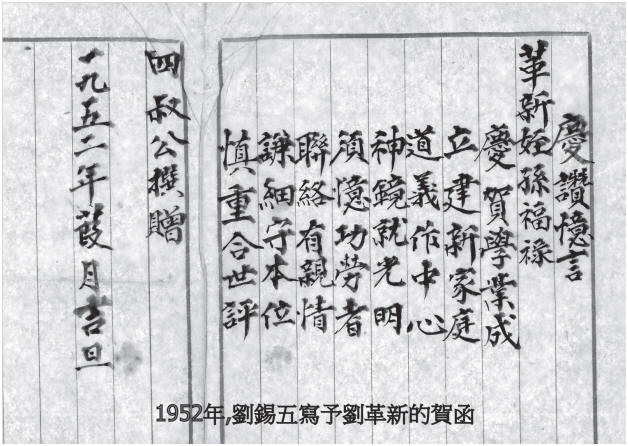 慶讚憶言
革新姪孫福祿
慶賀學業成
立建新家庭
道義作中心
神鏡就光明
須憶功勞者
聯絡有親情
謙細守本位
慎重合世評
四叔公撰贈
一九五二年葭月吉旦
1952年,劉錫五寫予劉革新的賀函